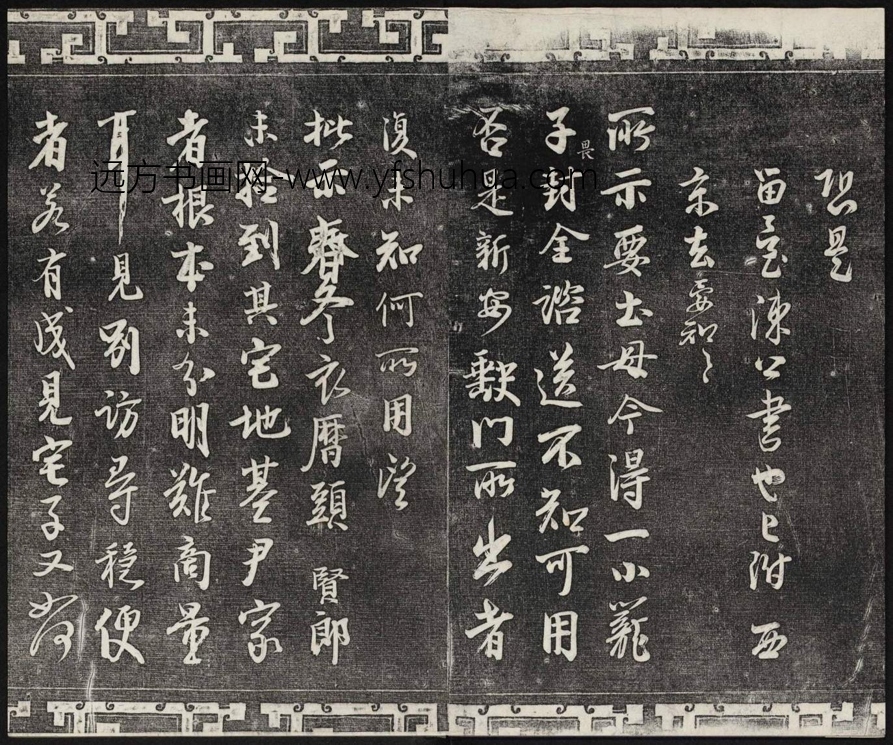 恐是
留臺陳公書也已附西
京去要知之
所示要土母今得一小籠
子封全諮送不知可用
畏
否是新安歙門所出者
復未知何所用望
批示春冬衣曆頭賢郎
未檢到其宅地基尹家
者根本未分明難商量
耳見別訪尋穩便
者若有成見宅子又如何
远方书画网-www.yfshuhua.com